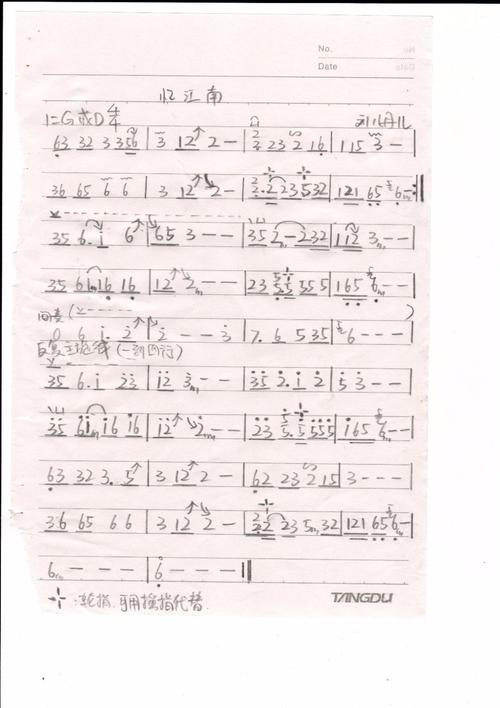 No.
Date
忆江南
1=G或D 4/4
63 32 3 356 | 3 12 2 — | 2 23 2 16 | 115 3 —
36 65 6 6 | 3 12 2 — | 2·2 23532 | 121 65 6 — :||
35 6·i 6 | 65 3 — — | 35 2 — 232 | 112 3 — —
35 61 16 16 | 12 2 — — | 23 5·5 555 | 165 6 — —
间奏 ( )
0 6 i· 2 | 2 — — 3 | 7· 6 535 | 6 — —
反复主旋律 (一到四行)
35 6·i 23 | i2 3 — — | 35 2·i 2 | 5 3 — —
35 6i i6 i6 | i2 2 — — | 23 5·5 555 | i65 6 — —
63 32 3· 5 | 3 12 2 — | 62 23 215 | 3 — — —
36 65 6 6 | 3 12 2 — | 2·2 23 5 32 | 121 65 6 —
6 — — — | 6 — — — ||
TANGDU
:轮指,可用摇指代替.